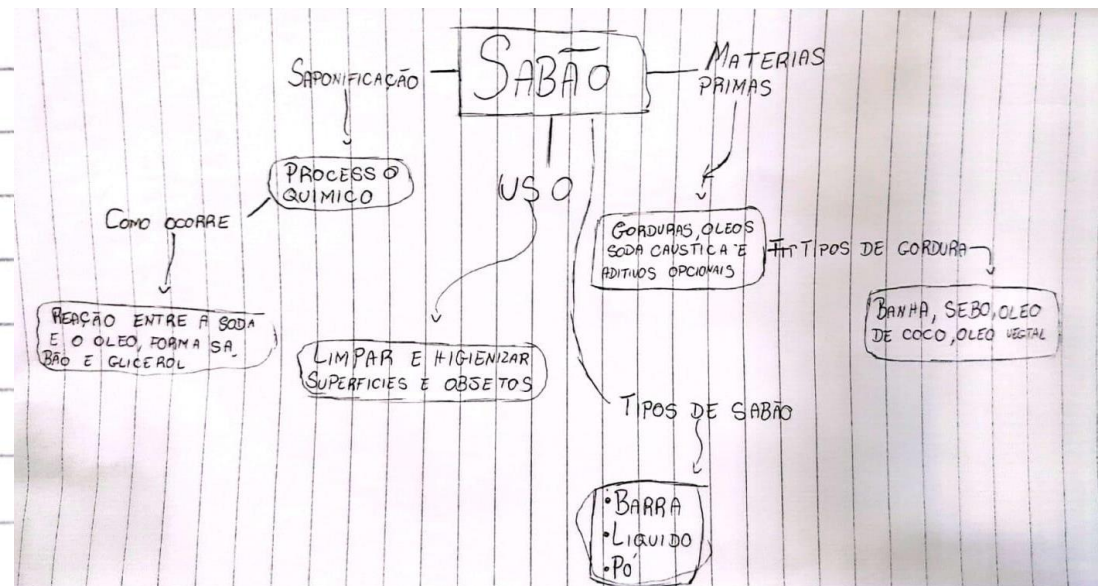 SABÃO
SAPONIFICAÇÃO
PROCESSO
QUIMICO
COMO OCORRE
REAÇÃO ENTRE A SODA
E O OLEO, FORMA SA_
BÃO E GLICEROL
USO
LIMPAR E HIGIENIZAR
SUPERFICIES E OBJETOS
MATERIAS
PRIMAS
GORDURAS, OLEOS
SODA CAUSTICA E
ADITIVOS OPCIONAIS
TIPOS DE GORDURA
BANHA, SEBO, OLEO
DE COCO, OLEO VEGTAL
TIPOS DE SABÃO
• BARRA
• LIQUIDO
• PÓ